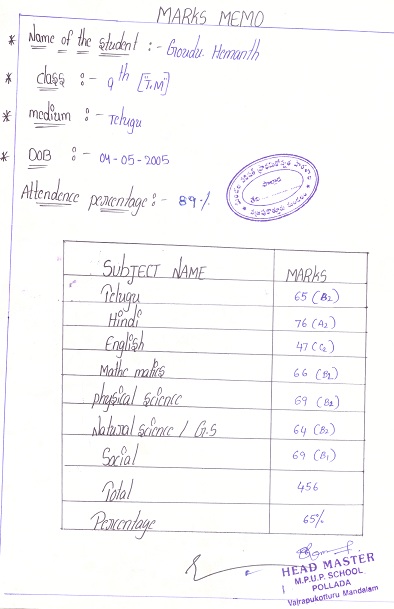 MARKS MEMO
* Name of the student :- Goudu. Hemanth
* class :- 9th ["T.M"]
* medium :- Telugu
* DOB :- 04-05-2005
Attendence percentage :- 89%
SUBJECT NAME MARKS
Telugu 65 (B2)
Hindi 76 (A2)
English 47 (C2)
Mathe matics 66 (B2)
physical science 69 (B2)
Natural science / G.S 64 (B2)
Social 69 (B1)
Total 456
Percentage 65%
HEAD MASTER
M.P.U.P. SCHOOL
POLLADA
Vajrapukotturu Mandalam